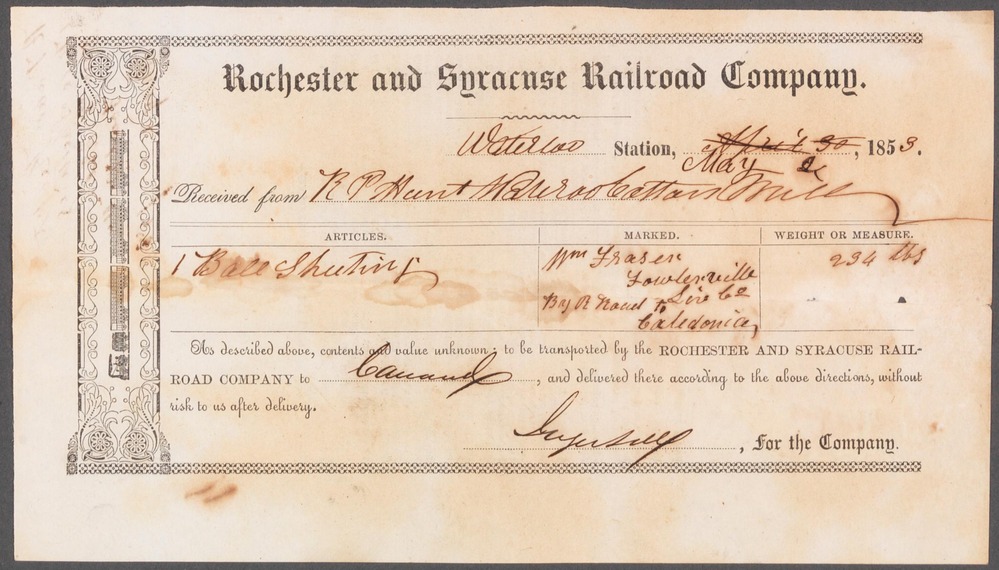 Rochester and Syracuse Railroad Company.
Waterloo Station, April 30, 1853.
May 2
Received from R P Hunt Waterloo Cotton Mill
ARTICLES. MARKED. WEIGHT OR MEASURE.
1 Bale Sheeting Wm Fraser 234 lbs
Fowlerville
By R Road to Liv Co
Caledonia
As described above, contents and value unknown; to be transported by the ROCHESTER AND SYRACUSE RAIL-
ROAD COMPANY to Canand, and delivered there according to the above directions, without
risk to us after delivery.
Ingersoll, For the Company.